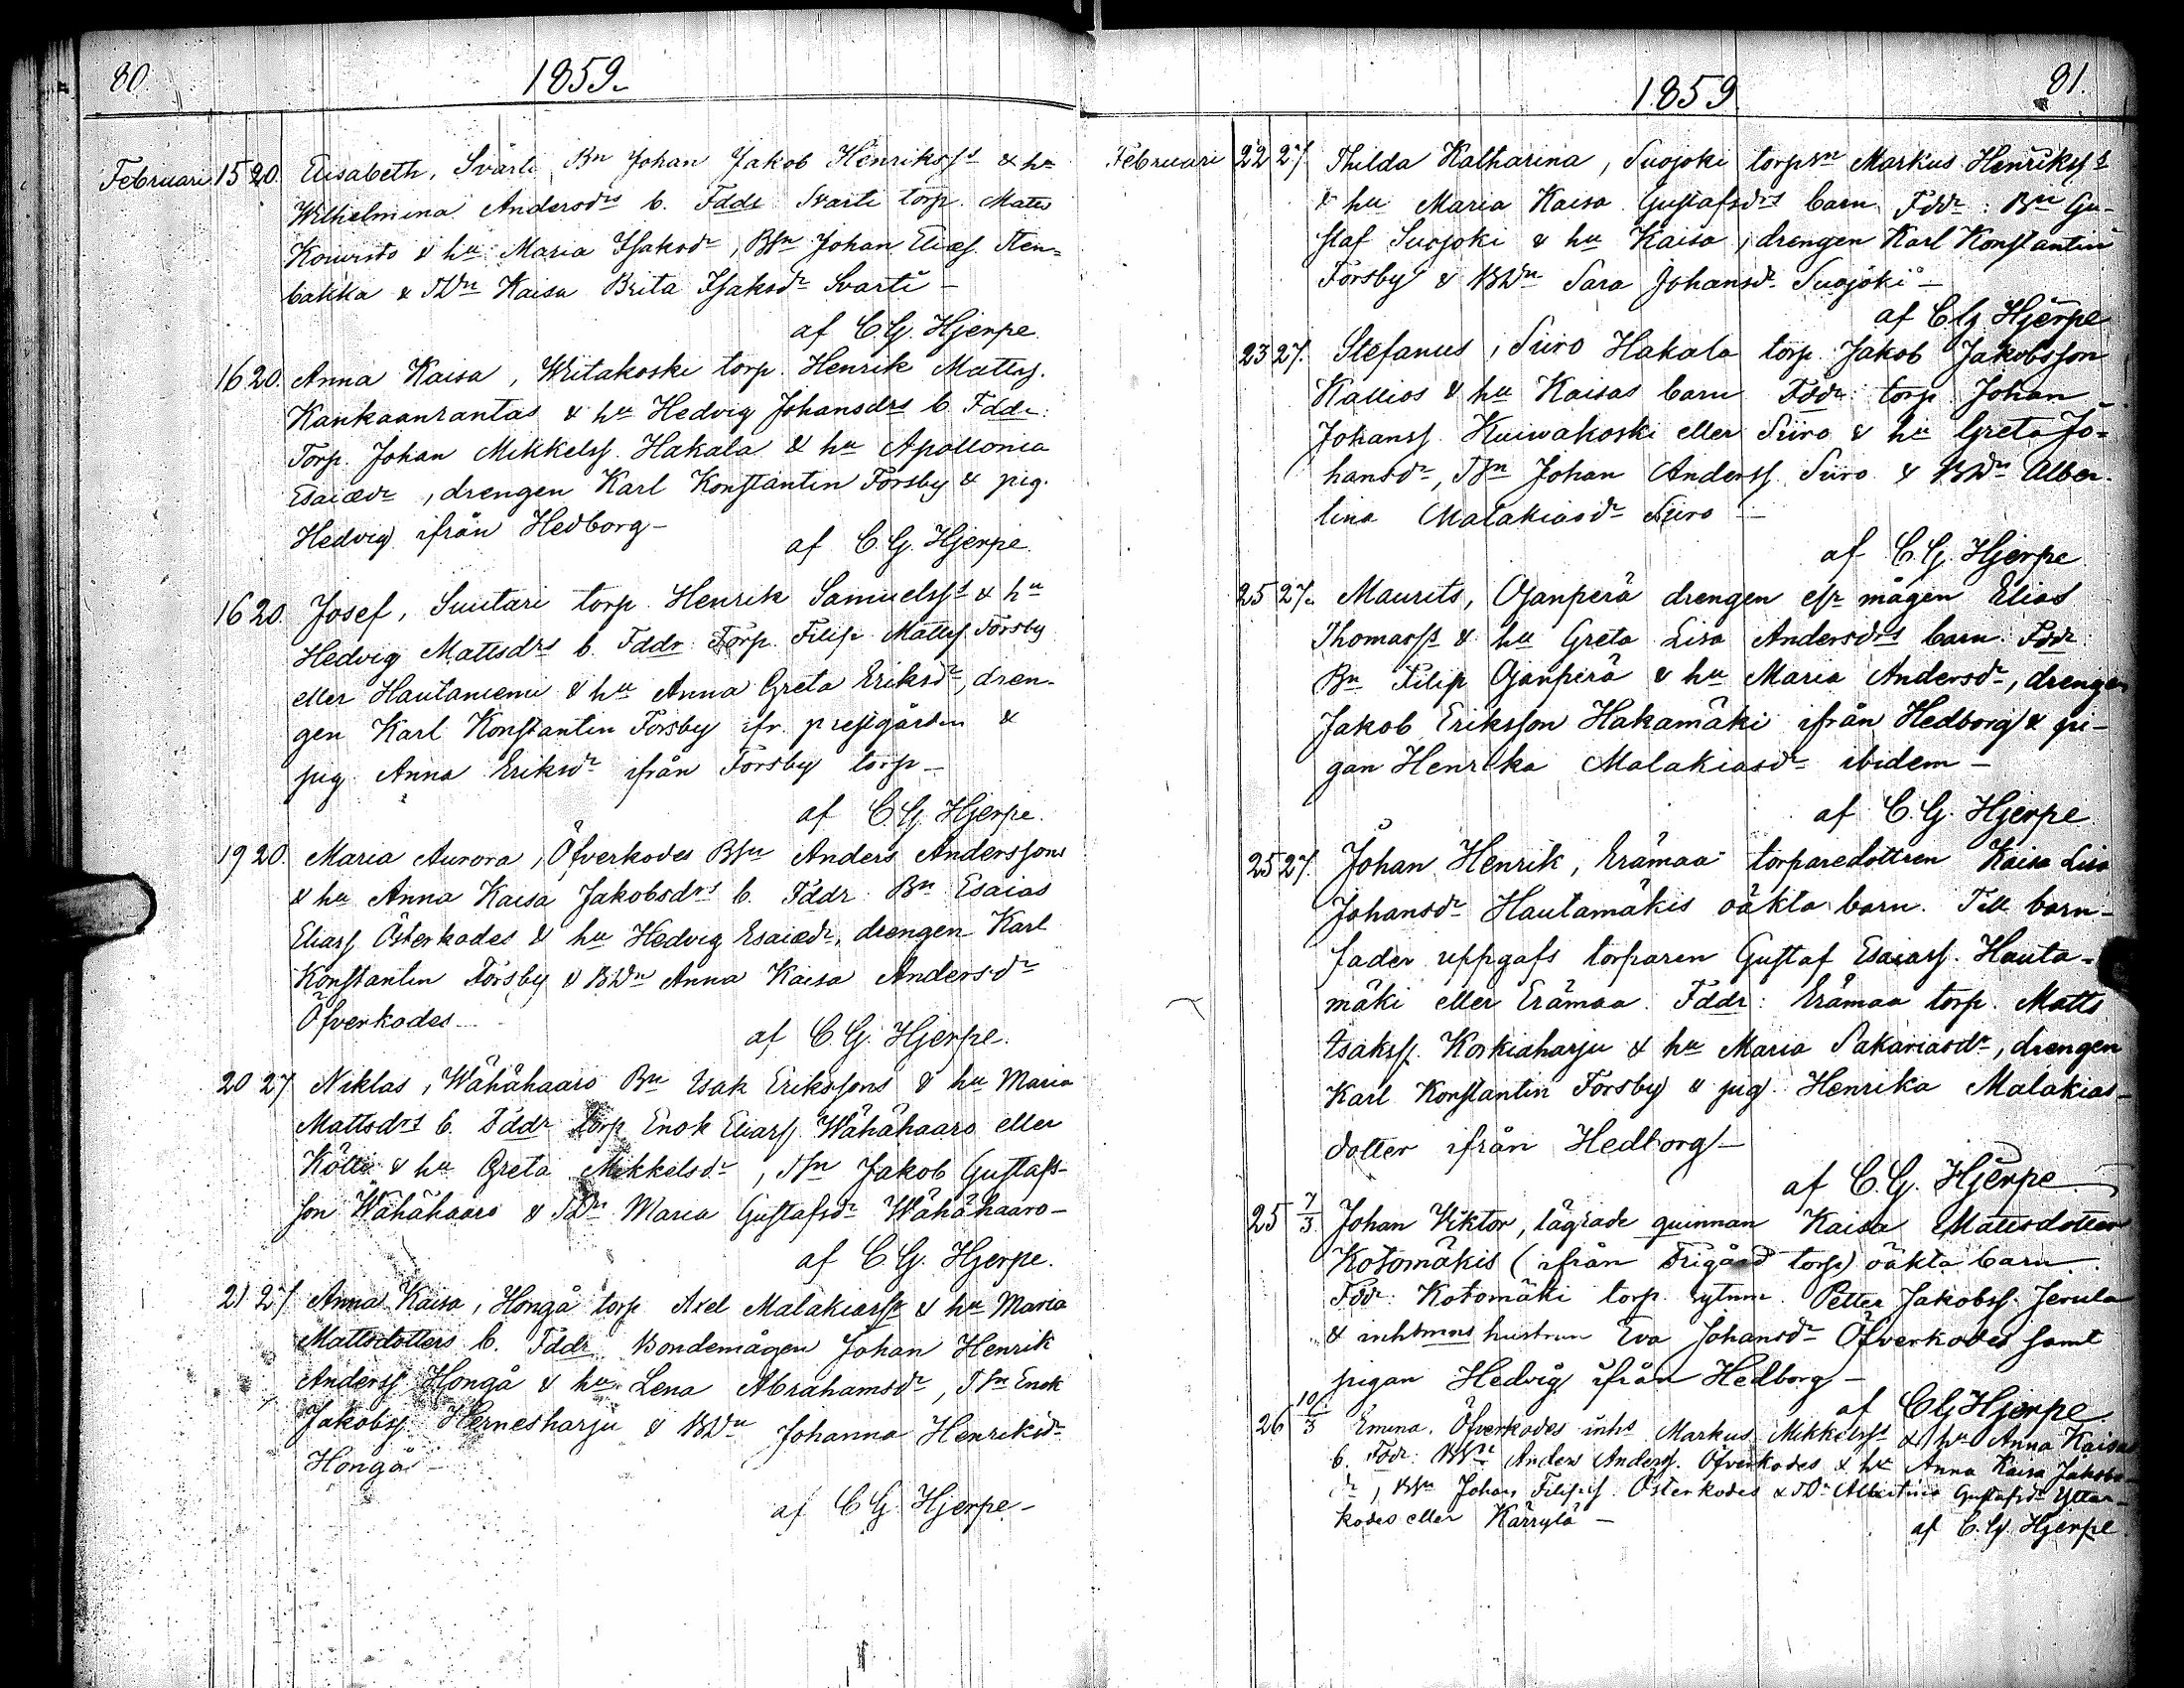 80.
1859.
Februari 15 20. Elisabeth, Svarti Bn Johan Jakob Henrikss:s & hu
Wilhelmina Andersdrs b. Fddr Svarti torp. Matts
Kouvisto & hu Maria Isaksdr, BSn Johan Eliass. Sten-
bakka & TDn Kaisa Brita Isaksdr Svarti –
af C. G. Hjerpe.
16 20. Anna Kaisa, Wiitakoski torp. Henrik Mattss.
Kankaanrantas & hu Hedvig Johansdrs b. Fddr:
Torp. Johan Mikkelss. Hakala & hu Apollonia
Esaiædr, drengen Karl Konstantin Forsby & pig.
Hedvig ifrån Hedborg –
af C. G. Hjerpe.
16 20. Josef, Suutari torp. Henrik Samuelss:s & hu
Hedvig Mattsdrs b. Fddr Torp. Filip Mattss. Forsby
eller Hautaniemi & hu Anna Greta Eriksdr, dren-
gen Karl Konstantin Forsby ifr. prestgården &
pig. Anna Eriksdr ifrån Forsby torp –
af C. G. Hjerpe.
19 20. Maria Aurora, Öfverkodes BSn Anders Anderssons
& hu Anna Kaisa Jakobsdrs b. Fddr. Bn Esaias
Eliass. Österkodes & hu Hedvig Esaiædr, drengen Karl
Konstantin Forsby & BDn Anna Kaisa Andersdr
Öfverkodes –
af C. G. Hjerpe.
20 27 Niklas, Wähähaaro Bn Isak Erikssons & hu Maria
Mattsdrs b. Fddr torp Enok Eliass. Wähähaaro eller
Kötti & hu Greta Mikkelsdr, TSn Jakob Gustafs-
son Wähähaaro & TDn Maria Gustafsdr Wähähaaro –
af C. G. Hjerpe.
21 27. Anna Kaisa, Hongå torp Axel Malakiass:s & hu Maria
Mattsdotters b. Fddr. Bondemågen Johan Henrik
Anderss. Hongå & hu Lena Abrahamsdr, TSn Enok
Jakobss. Hernesharju & BDn Johanna Henriksdr
Hongå –
af C. G. Hjerpe –
1859
81.
Februari 22 27. Thilda Katharina, Suojoki torpSn Markus Henrikss:s
& hu Maria Kaisa Gustafsdrs barn. Fddr: Bn Gu-
staf Suojoki & hu Kaisa, drengen Karl Konstantin
Forsby & BDn Sara Johansdr Suojoki –
af C. G. Hjerpe
23 27. Stefanus, Siiro Hakala torp. Jakob Jakobsson
Kallios & hu Kaisas barn Fddr: torp. Johan
Johanss. Kuiwakoski eller Siiro & hu Greta Jo-
hansdr, TSn Johan Anderss. Siiro & BDn Alber-
tina Malakiasdr Siiro –
af C. G. Hjerpe
25 27. Maurits, Ojanperä drengen mågen Elias
Thomass:s & hu Greta Lisa Andersdrs barn. Fddr:
Bn Filip Ojanperä & hu Maria Andersdr, drengen
Jakob Eriksson Hakamäki ifrån Hedborg & pi-
gan Henrika Malakiasdr ibidem –
af C. G. Hjerpe
25 27. Johan Henrik, Erämaa torparedottren Kaisa Lisa
Johansdr Hautamäkis oäkta barn. Till barn-
fader uppgafs torparen Gustaf Esaiass. Hauta-
mäki eller Erämaa. Fddr: Erämaa torp. Matts
Isakss. Korkiaharju & hu Maria Sakariasdr, drengen
Karl Konstantin Forsby & pig. Henrika Malakias-
dotter ifrån Hedborg –
af C. G. Hjerpe
25 7/3 Johan Viktor, lägrade quinnan Kaisa Mattsdotter
Kotomäkis (ifrån Frigård torp) oäkta barn.
Fddr: Kotomäki torp. Petter Jakobss. Jerula
& inhysmans hustrun Eva Johansdr Öfverkodes samt
pigan Hedvig ifrån Hedborg –
af C G Hjerpe.
26 10/3 Emma, Öfverkodes inhs Markus Mikkelss:s & hu Anna Kaisas
b. Fddr: BSn Anders Anderss. Öfverkodes & hu Anna Kaisa Jakobs-
dr, BSn Johan Filipss. Österkodes & TDr Albertina Gustafsdr Ytter-
kodes eller Kärrylä –
af C. G. Hjerpe